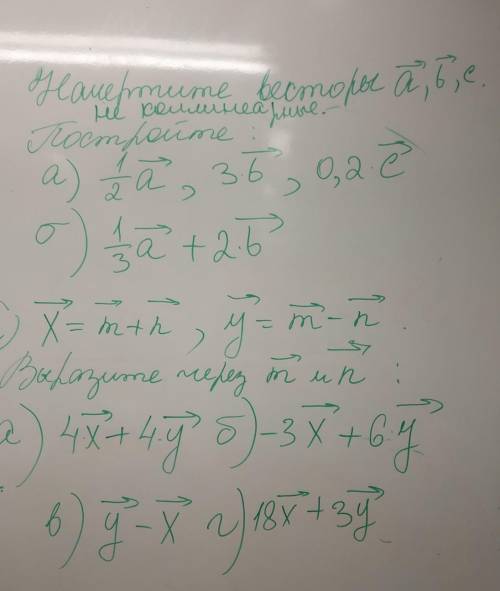 Начертите векторы a⃗, b⃗, c⃗.
не коллинеарные.
Постройте:
а) 1/2 a⃗, 3·b⃗, 0,2·c⃗
б) 1/3 a⃗ + 2·b⃗
x⃗ = m⃗ + n⃗, y⃗ = m⃗ - n⃗.
Выразите через m⃗ и n⃗:
а) 4·x⃗ + 4·y⃗ б) -3x⃗ + 6·y⃗
в) y⃗ - x⃗ г) 18x⃗ + 3y⃗